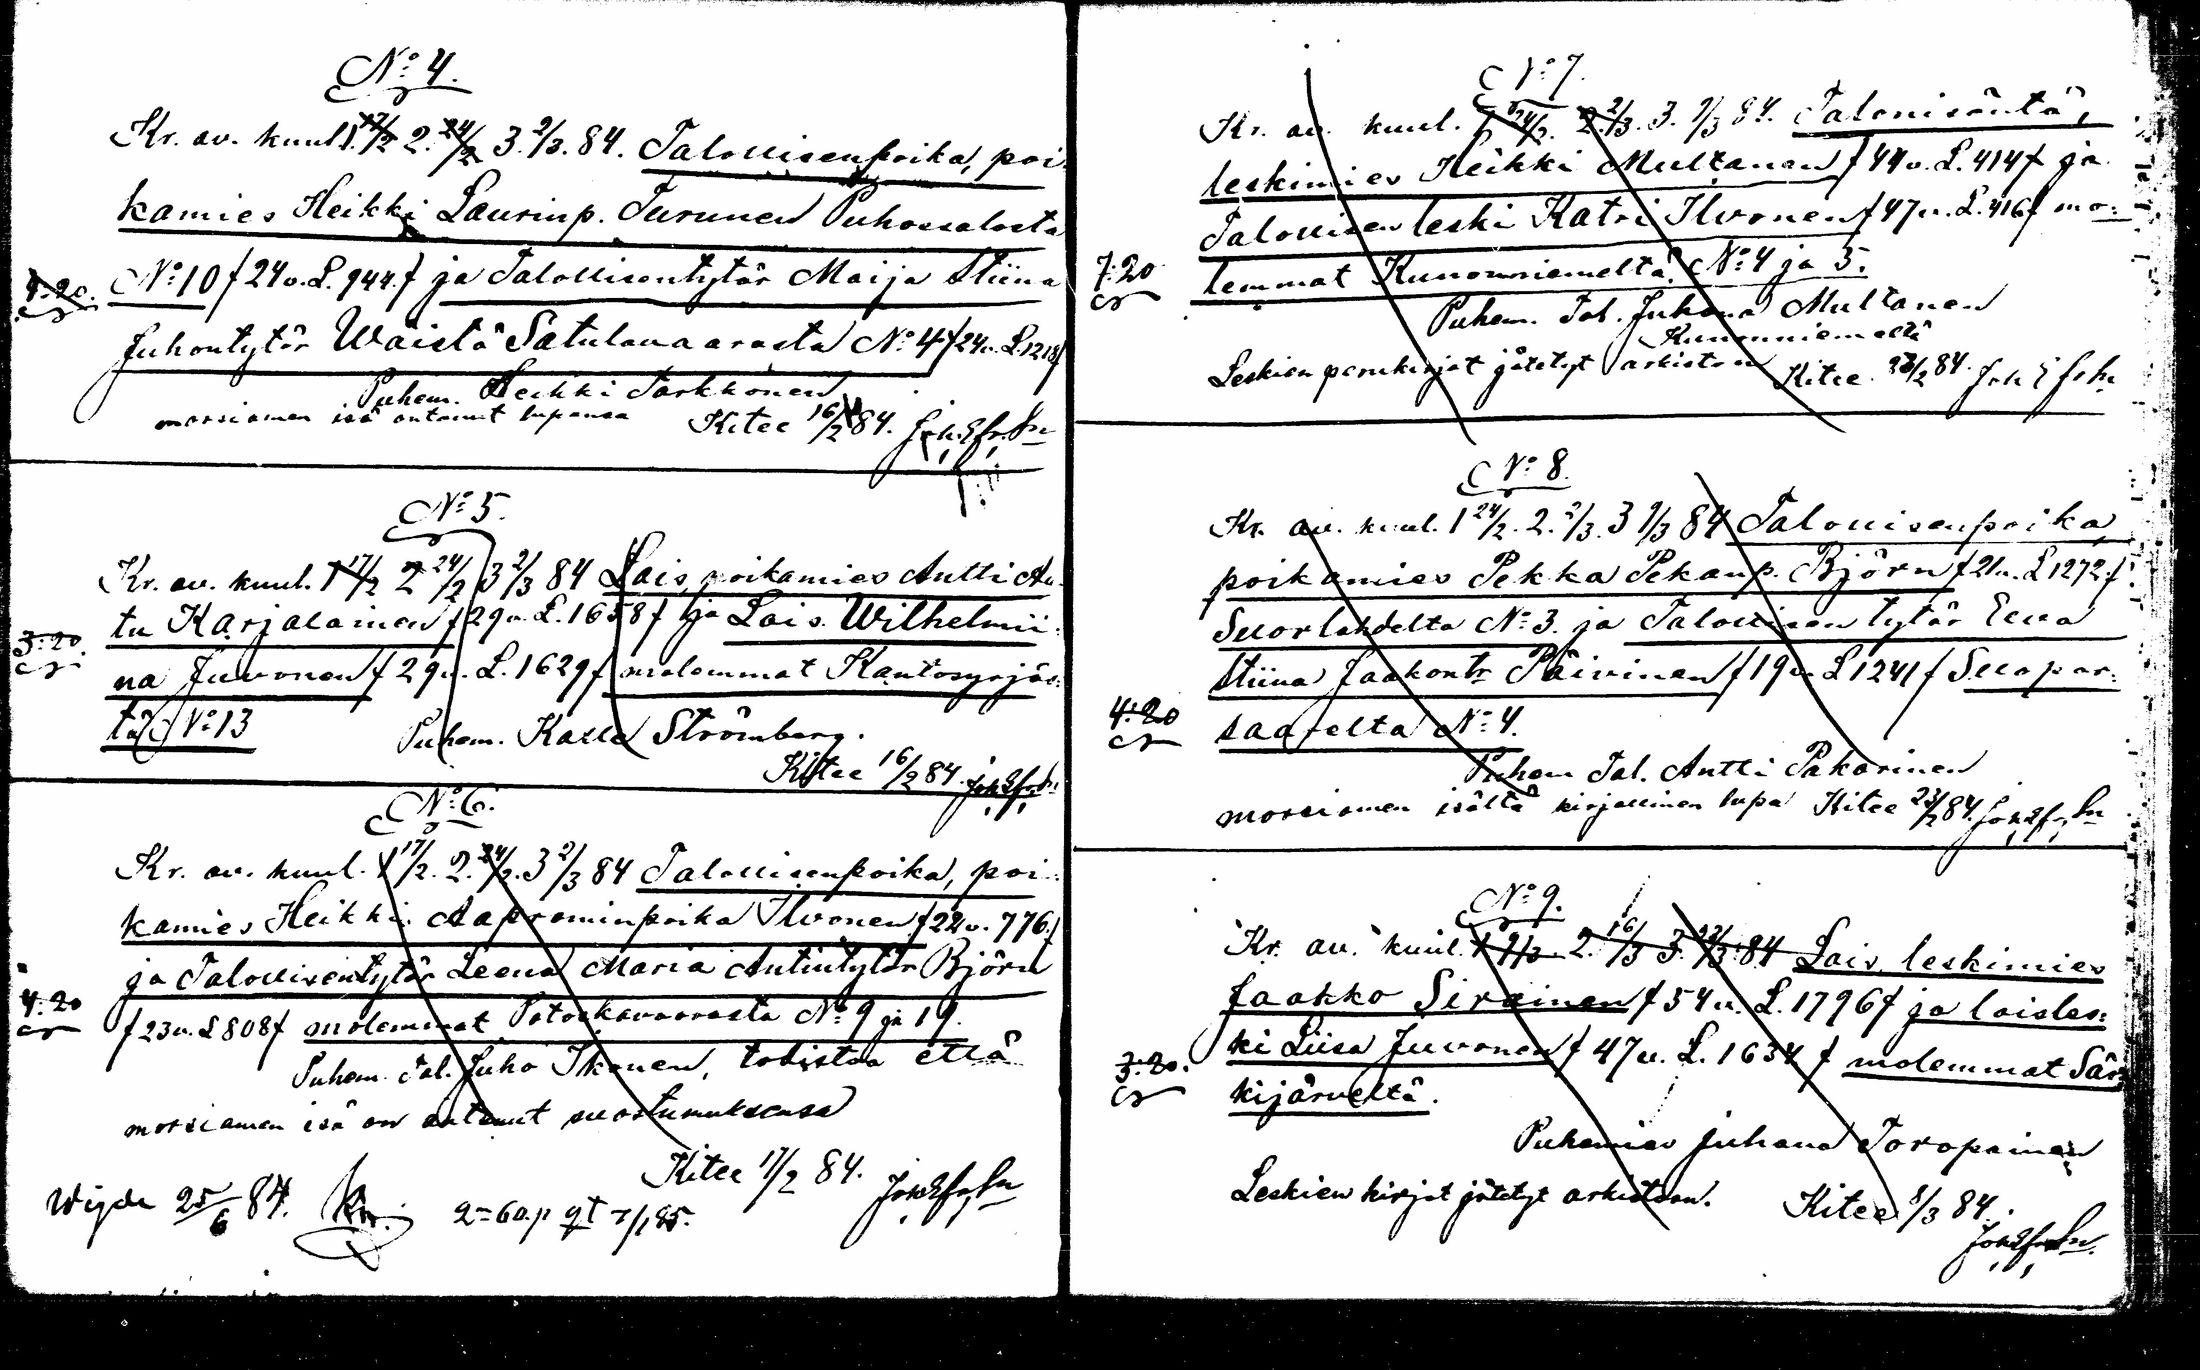 No 4.
Kr. av. kuul. 1. 17/2 2. 24/2 3. 2/3. 84. Talollisenpoika, poi-
kamies Heikki Laurinp. Turunen Puhossalosta
4:20. No 10 f 24 v. L. 944. f ja Talollisentytär Maija Stiina
Juhontytär Waistä Satulavaarasta No 4 f 24 v. L. 1218 f
Puhem. Heikki Tarkkonen
morsiamen isä antanut lupansa Kitee 16/2 84.
No 5.
Kr. av. kuul. 1 17/2 2 24/2 3 2/3 84 Lois, poikamies Antti An-
tu Karjalainen f 29 v. L. 1658 f ja Lois. Wilhelmii-
3:20. na Juvonen f 29 v. L. 1629 f molemmat Kantosyrjäs-
tä No 13 Puhem. Kalle Strömberg.
Kitee 16/2 84.
No 6.
Kr. av. kuul. 1 17/2. 2. 24/2. 3 2/3 84 Talollisenpoika, poi-
kamies Heikki Aapraminpoika Ilvonen f 22 v. 776. f
ja Talollisentytär Leena Maria Antintytär Björn
4:20 f 23 v. L 808 f molemmat Potoskavaarasta No 9 ja 19.
Puhem. Tal. Juho Ikonen, todistaa että
morsiamen isä on antanut suostumuksensa
Kitee 17/2 84.
Wijde 25/6 84. 2=60 p
No 7.
Kr. av. kuul. 1 24/2. 2. 2/3. 3. 9/3 84. Talonisäntä,
leskimies Heikki Multanen f 44 v. L. 414 f ja
Talollisen leski Katri Ilvonen f 47 v. L. 416 f mo-
7:20 lemmat Kunonniemeltä No 4 ja 5.
Puhem. Tal. Juhana Multanen
Kunonniemeltä
Leskien perukirjat jätetyt arkistoon Kitee 23/2 84.
No 8.
Kr. av. kuul. 1 24/2. 2. 2/3. 3 9/3 84 Talollisenpoika,
poikamies Pekka Pekanp. Björn f 21 v. L 1272 f
Suorlahdelta No 3. ja Talollisen tytär Eeva
Stiina Jaakontr Päivinen f 19 v. L 1241 f Suopar-
4:20 saarelta No 4.
Puhem Tal. Antti Pakarinen
morsiamen isältä kirjallinen lupa Kitee 23/2 84.
No 9.
Kr. av. kuul. 1 9/3 2. 16/3 3. 23/3. 84 Lois, leskimies
Jaakko Sirainen f 54 v. L. 1796 f ja loisles-
3:20. ki Liisa Juvonen f 47 v. L. 1634 f molemmat Sär-
kijärveltä.
Puhemies Juhana Toropainen
Leskien kirjat jätetyt arkistoon. Kitee 8/3 84.